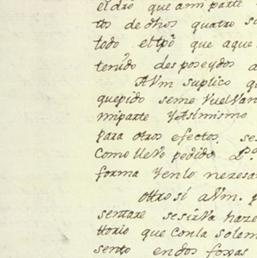 el dio que a mi parte
tos de dhos quatro su
todo el tpõ que aque
tenido desposeydos a
AVm suplico q
que pido se me Vuelvan
mi parte y Asimismo
para otros efectos. se
Como lleVo pedido
forma Y en lo neresa
Ottro si a Vm. p
sentare se sirVa haze
ttorio que Con la solem
sento en dos foxas